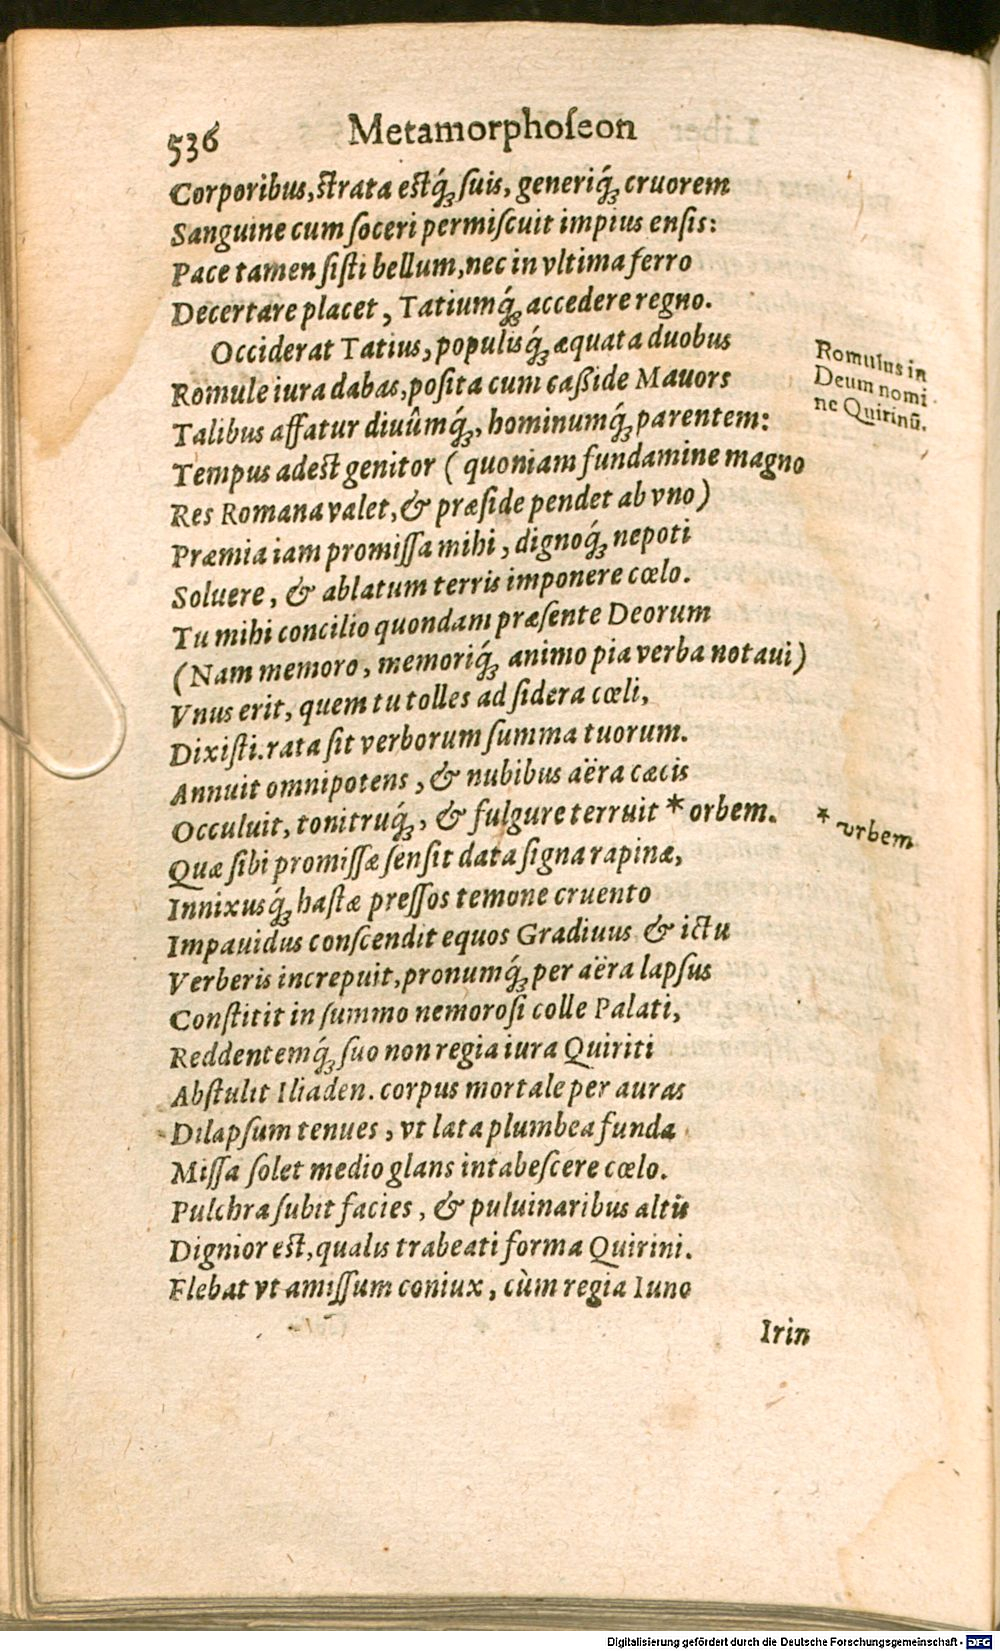 536 Metamorphoſeon
Corporibus, ſtrata eſtq́ꝫ ſuis, generiq́ꝫ cruorem
Sanguine cum ſoceri permiſcuit impius enſis:
Pace tamen ſiſti bellum, nec in vltima ferro
Decertare placet, Tatiumq́ꝫ accedere regno.
Occiderat Tatius, populisq́ꝫ æquata duobus
Romule iura dabas, poſita cum caßide Mauors
Talibus affatur diuûmq́ꝫ, hominumq́ꝫ parentem:
Tempus adeſt genitor (quoniam fundamine magno
Res Romana valet, & præſide pendet ab vno)
Præmia iam promiſſa mihi, dignoq́ꝫ nepoti
Soluere, & ablatum terris imponere cœlo.
Tu mihi concilio quondam præſente Deorum
(Nam memoro, memoriq́ꝫ animo pia verba notaui)
Vnus erit, quem tu tolles ad ſidera cœli,
Dixiſti. rata ſit verborum ſumma tuorum.
Annuit omnipotens, & nubibus aëra cæcis
Occuluit, tonitruq́ꝫ, & fulgure terruit * orbem.
Quæ ſibi promiſſæ ſenſit data ſigna rapinæ,
Innixusq́ꝫ haſtæ preſſos temone cruento
Impauidus conſcendit equos Gradiuus & ictu
Verberis increpuit, pronumq́ꝫ per aëra lapſus
Conſtitit in ſummo nemoroſi colle Palati,
Reddentemq́ꝫ ſuo non regia iura Quiriti
Abſtulit Iliaden. corpus mortale per auras
Dilapſum tenues, vt lata plumbea funda
Miſſa ſolet medio glans intabeſcere cœlo.
Pulchra ſubit facies, & puluinaribus altis
Dignior eſt, qualis trabeati forma Quirini.
Flebat vt amiſſum coniux, cùm regia Iuno
Irin
Romulus in
Deum nomi
ne Quirinũ.
* vrbem
Digitalisierung gefördert durch die Deutsche Forschungsgemeinschaft - DFG